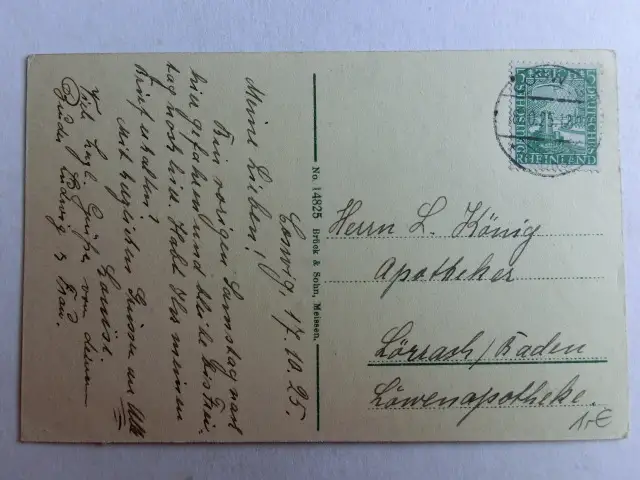 Coswig, 17.10.25.
Meine Lieben!
Bin vorigen Samstag nach
hier gefahren und bleibe bis Frei-
tag noch hier. Habt Ihr meinen
Brief erhalten?
Mit herzlichen Grüssen an Alle
Louise.
Viele herzl. Grüße von deinem
Bruder Ludwig & Frau.
No. 14825 Brück & Sohn, Meissen.
DEUTSCHES REICH
RHEINLAND
5
.10.25.
Herrn L. König
Apotheker
Lörrach/Baden
Löwenapotheke.
1,-€